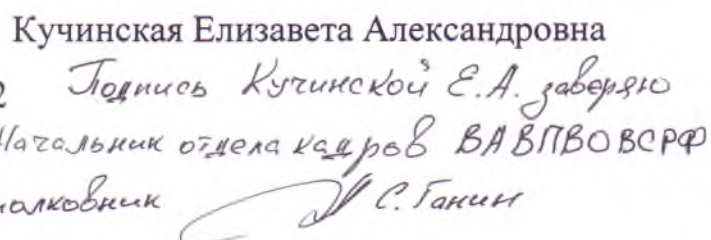 Кучинская Елизавета Александровна
Подпись Кучинской Е.А. заверяю
Начальник отдела кадров ВАВПВОВСРФ
полковник С. Ганин